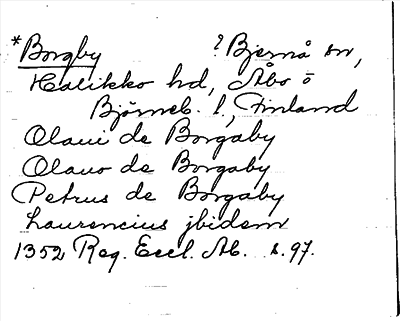 *Borgby ? Bjernå sn,
Halikko hd, Åbo o
Björneb. l, Finland
Olaui de Borgaby
Olauo de Borgaby
Petrus de Borgaby
Laurencius jbidem
1352 Reg. Eccl. Ab. s. 97.